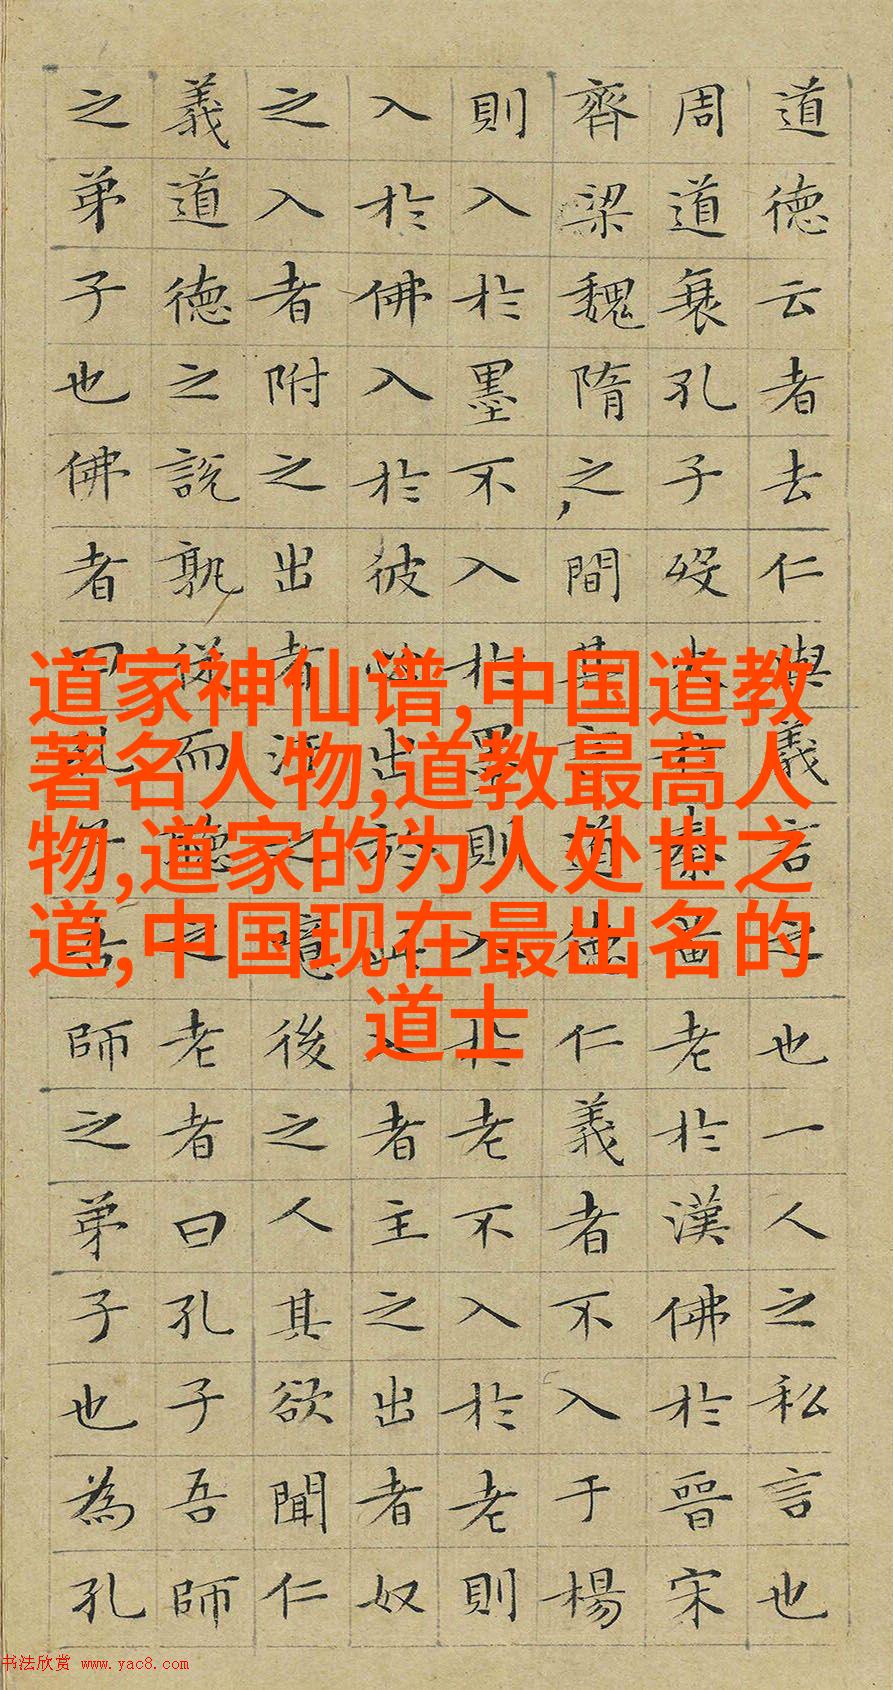 道德云者去仁與義言之也一人之私言也
周道衰孔子歿火於秦黃老於漢佛於晉宋
齊梁魏隋之間其言道德仁義者不入于楊
則入於墨不入於墨則入於老不入於老則
入於佛入於彼必出於此入者主之出者奴
之入者附之出者汙之噫後之人其欲聞仁
義道德之說孰從而聽之老者曰孔子吾師
之弟子也佛者曰孔子吾師之弟子也為孔
道家神仙谱,中国道教
著名人物,道教最高人
物,道家的为人处世之
道,中国现在最出名的
道士
书法欣赏 www.yac8.com